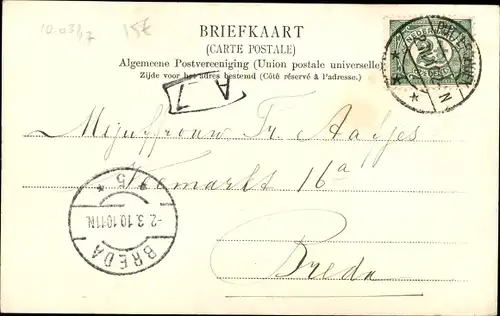 10.0317
15€
BRIEFKAART
(CARTE POSTALE)
Algemeene Postvereeniging (Union postale universelle)
Zijde voor het adres bestemd (Côté réservé à l'adresse.)
NEDERLAND
A 7
Mejuffrouw Tr. Aatjes
Veemarkt 16a
Breda
5
-2.3.10.1011N.
BREDA